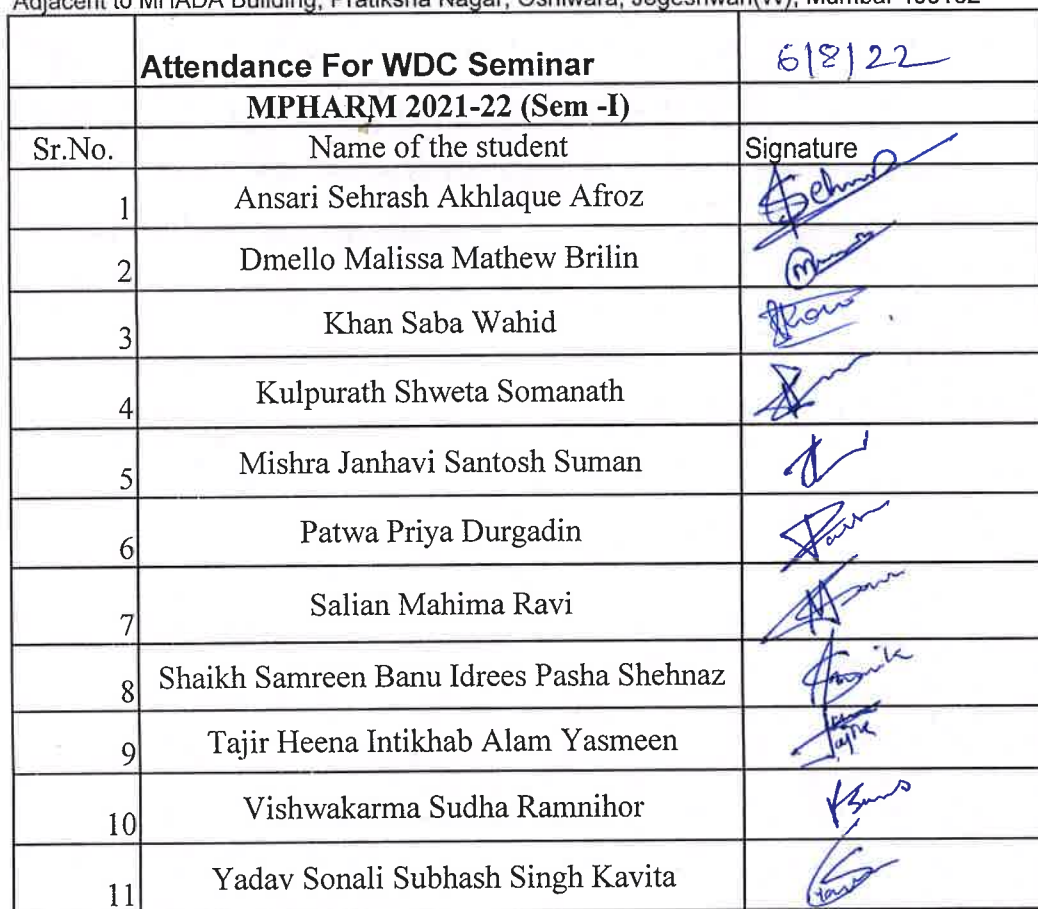 Adjacent to MHADA Building, Pratiksha Nagar, Oshiwara, Jogeshwari(W), Mumbai-400102
Attendance For WDC Seminar 6/8/22
MPHARM 2021-22 (Sem -I)
Sr.No. Name of the student Signature
1 Ansari Sehrash Akhlaque Afroz
2 Dmello Malissa Mathew Brilin
3 Khan Saba Wahid
4 Kulpurath Shweta Somanath
5 Mishra Janhavi Santosh Suman
6 Patwa Priya Durgadin
7 Salian Mahima Ravi
8 Shaikh Samreen Banu Idrees Pasha Shehnaz
9 Tajir Heena Intikhab Alam Yasmeen
10 Vishwakarma Sudha Ramnihor
11 Yadav Sonali Subhash Singh Kavita